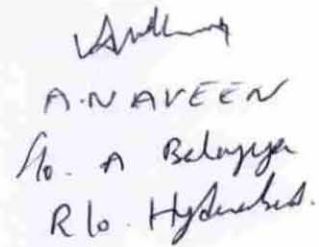 A. NAVEEN
S/o. A Balayya
R/o. Hyderabad.